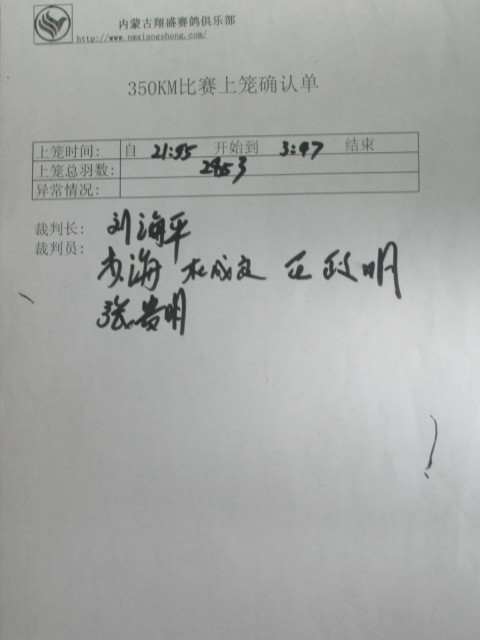 内蒙古翔盛赛鸽俱乐部
http://www.nmxiangsheng.com/
350KM比赛上笼确认单
上笼时间: 自 21:55 开始到 3:47 结束
上笼总羽数: 2853
异常情况:
裁判长: 刘海平
裁判员:
海 杜成文 正政明
张贵明